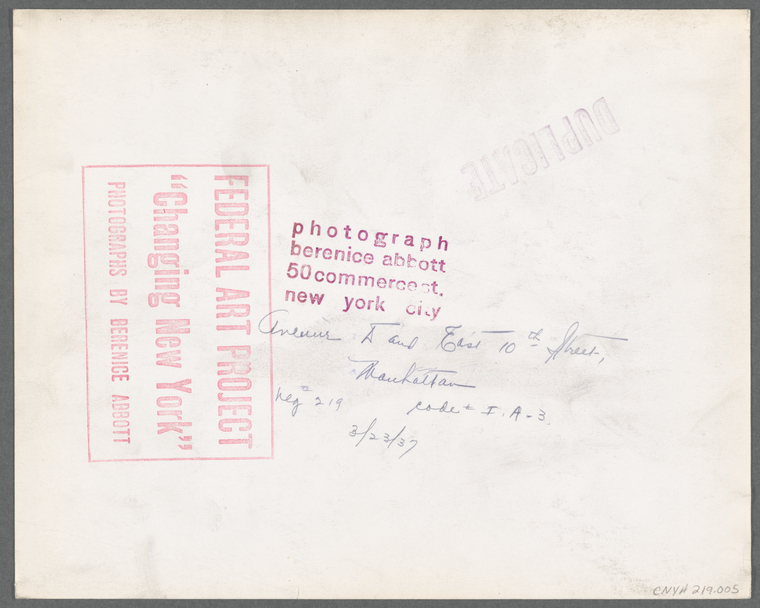 DUPLICATE
FEDERAL ART PROJECT
"Changing New York"
PHOTOGRAPHS BY BERENICE ABBOTT
photograph
berenice abbott
50 commerce st.
new york city
Avenue D and East 10th Street,
Manhattan
Neg # 219 code # I.A-3.
3/23/37
CNYH 219.005